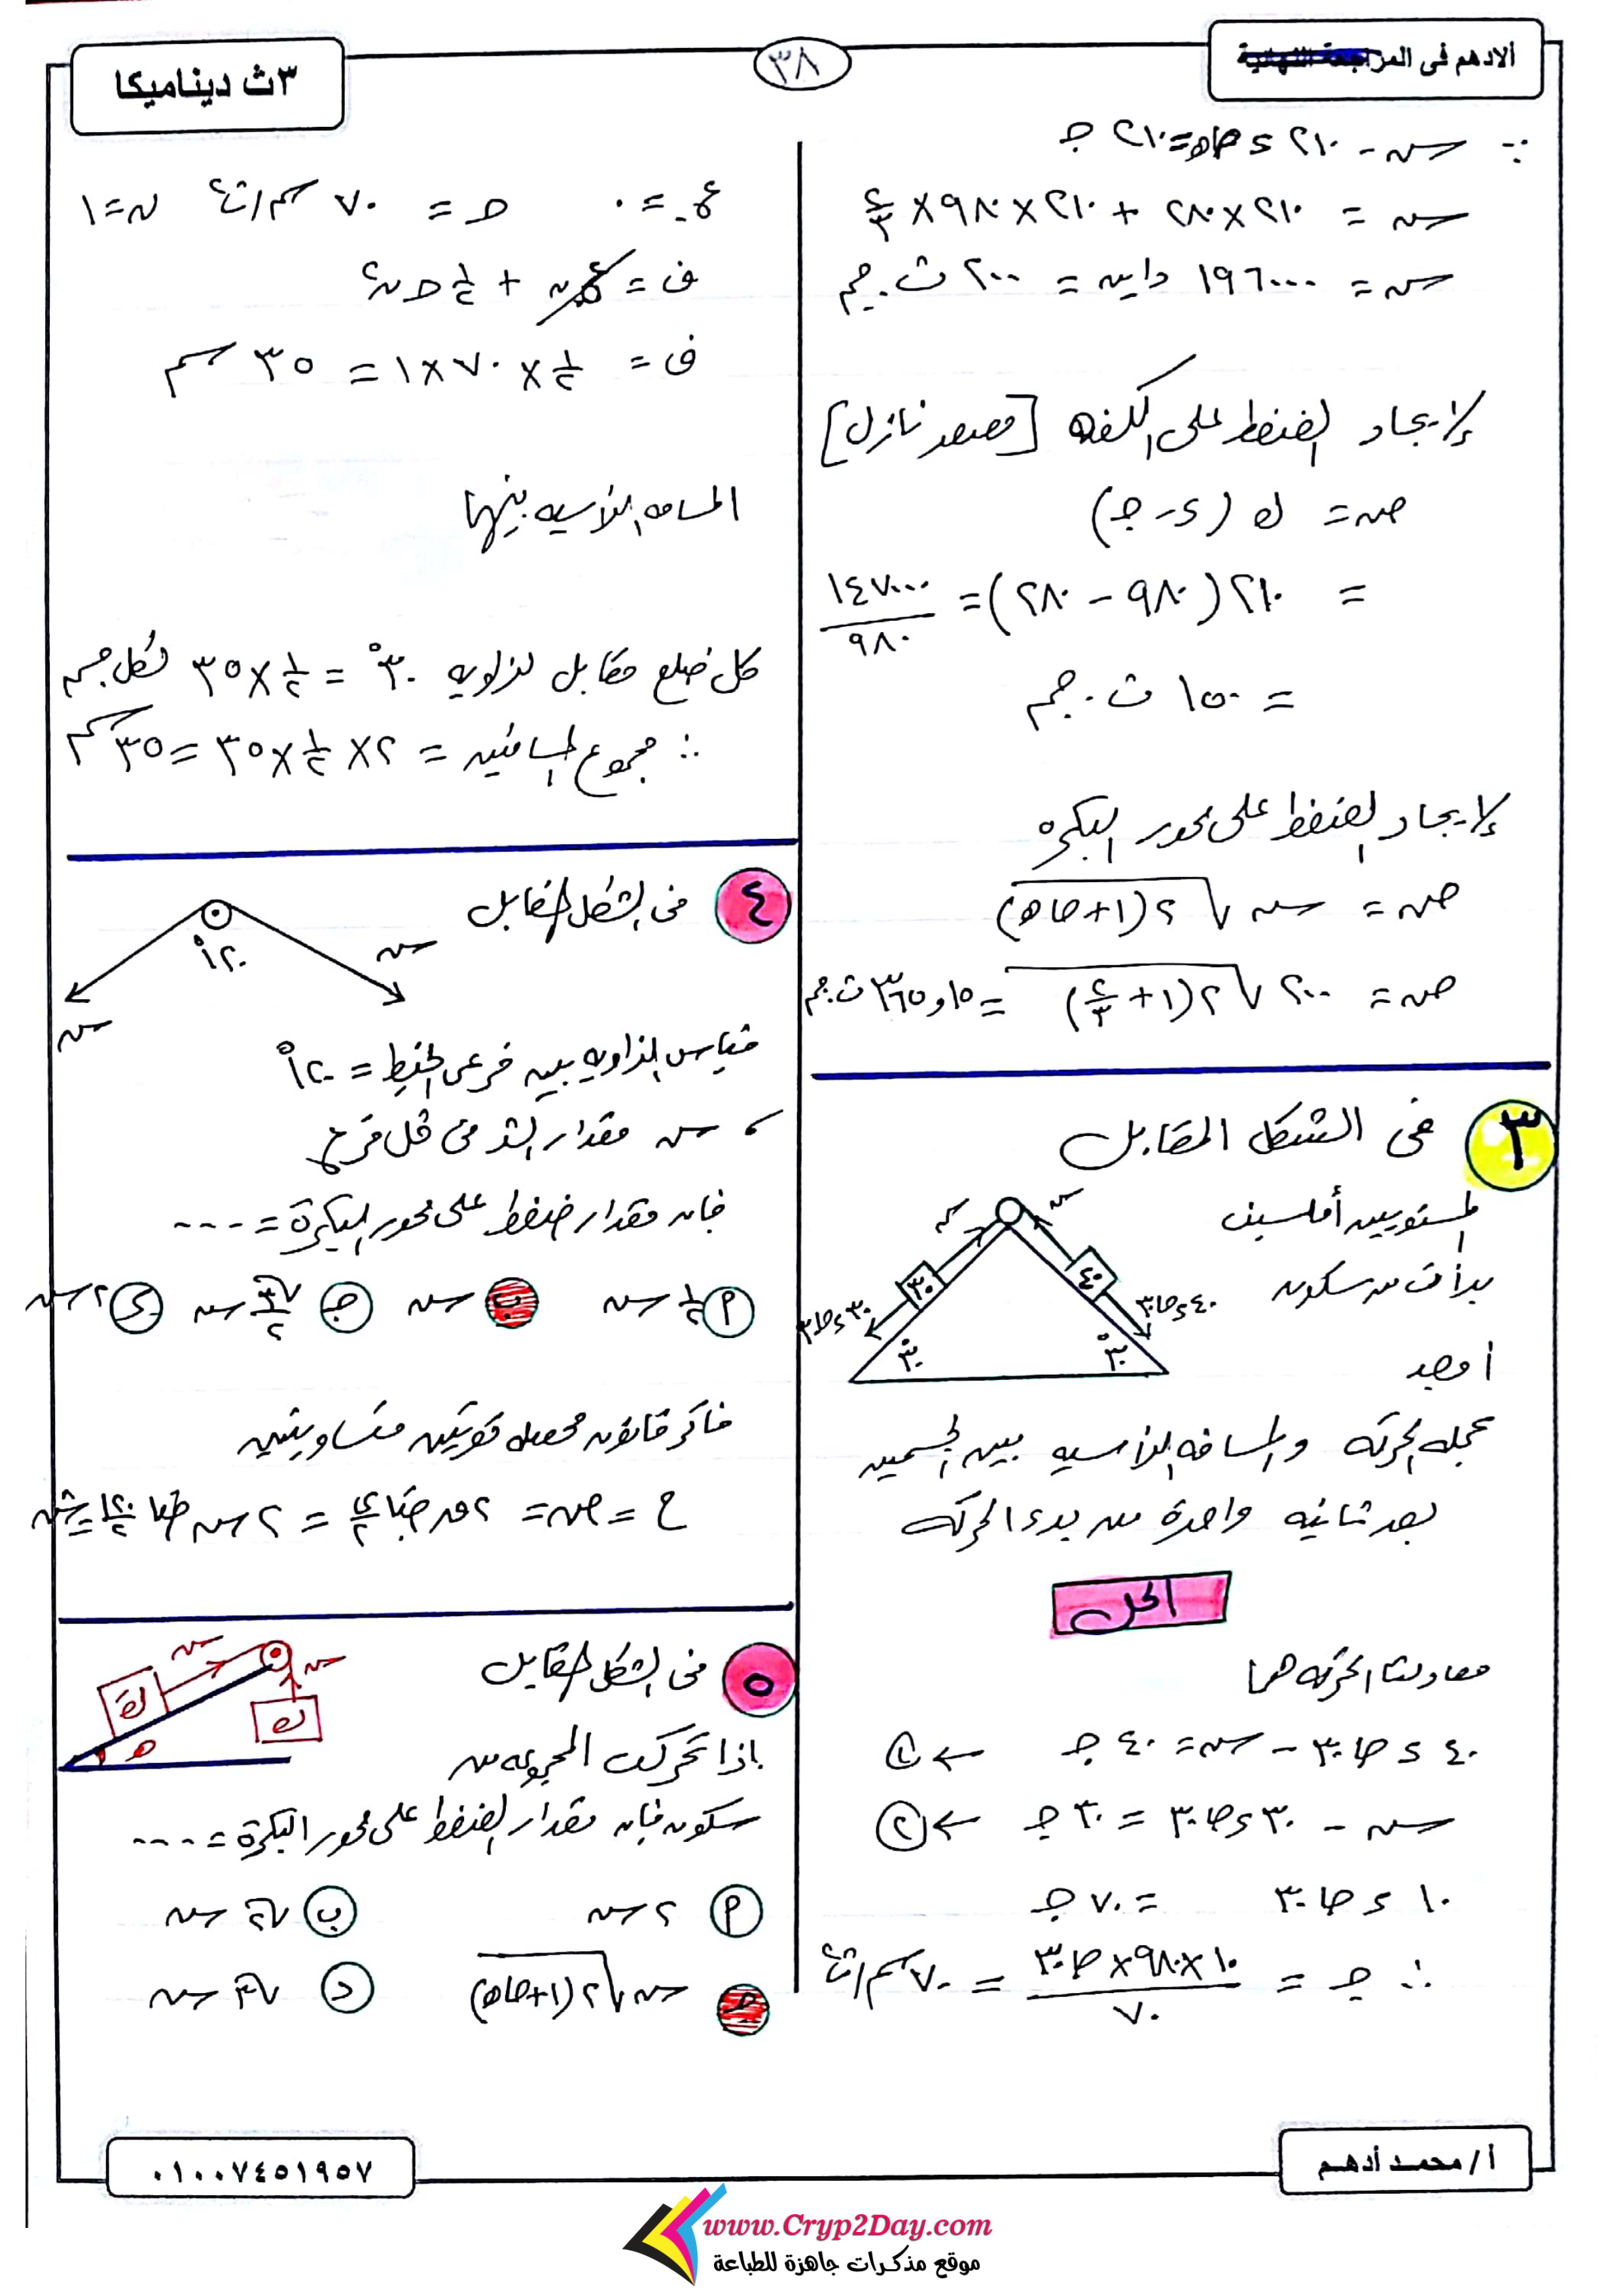 الادهم فى المراجعة النهائية
٣٨
٣ث ديناميكا
∵ سہ - ٢١٠ ء حا هـ = ٢١٠ جـ
سہ = ٢١٠ × ٢٨٠ + ٢١٠ × ٩٨٠ × ٢/٣
سہ = ١٩٦٠٠٠ داين = ٢٠٠ ث.جم
لإيجاد الضغط على الكفه [مصعد نازل]
ضہ = ك (ء - جـ)
= ٢١٠ (٩٨٠ - ٢٨٠) = ١٤٧٠٠٠/٩٨٠
= ١٥٠ ث.جم
لإيجاد الضغط على محور البكره
ضہ = سہ √٢(١+حا هـ)
ضہ = ٢٠٠ √٢(١+٢/٣) = ٣٦٥,١٥ ث.جم
٣ فى الشكل المقابل
المستويين أملسين
بدأت من سكون
أوجد
سہ سہ
٣٠ ٤٠
٣٠ ء حا ٣٠ ٤٠ ء حا ٣٠
٣٠° ٣٠°
عجله الحركه والمسافه الرأسيه بين الجسمين
بعد ثانيه واحدة من بدء الحركه
الحل
معادلتا الحركه هما
٤٠ ء حا ٣٠ - سہ = ٤٠ جـ ← ١
سہ - ٣٠ ء حا ٣٠ = ٣٠ جـ ← ٢
١٠ ء حا ٣٠ = ٧٠ جـ
∴ جـ = ١٠×٩٨٠×حا ٣٠/٧٠ = ٧٠ سم/ث٢
ع.= ٠ حـ = ٧٠ سم/ث٢ ن = ١
ف = ع.ن + ١/٢ حـ ن٢
ف = ١/٢ × ٧٠ × ١ = ٣٥ سم
المسافه الرأسيه بينهما
كل ضلع مقابل لزاويه ٣٠° = ١/٢ × ٣٥ لكل جسم
∴ مجموع المسافتين = ٢ × ١/٢ × ٣٥ = ٣٥ سم
٤ فى الشكل المقابل
١٢٠°
سہ
سہ
قياس الزاويه بين فرعى الخيط = ١٢٠°
، سہ مقدار الشد فى كل فرع
فإن مقدار ضغط على محور البكرة = ----
أ ١/٢ سہ ب سہ جـ √٣/٢ سہ ء ٢ سہ
فاكر قانون محصله قوتين متساويتين
ح = ضہ = ٢ ق حتا ى/٢ = ٢ سہ حتا ١٢٠/٢ = سہ
٥ فى الشكل المقابل
سہ
سہ
ك
ك
هـ
إذا تحركت المجموعه من
سكون فإن مقدار الضغط على محور البكرة = ----
أ ٢ سہ ب √٢ سہ
جـ سہ √٢(١+حا هـ) د √٣ سہ
أ/محمد أدهم
٠١٠٠٧٤٥١٩٥٧
www.Cryp2Day.com
موقع مذكرات جاهزة للطباعة